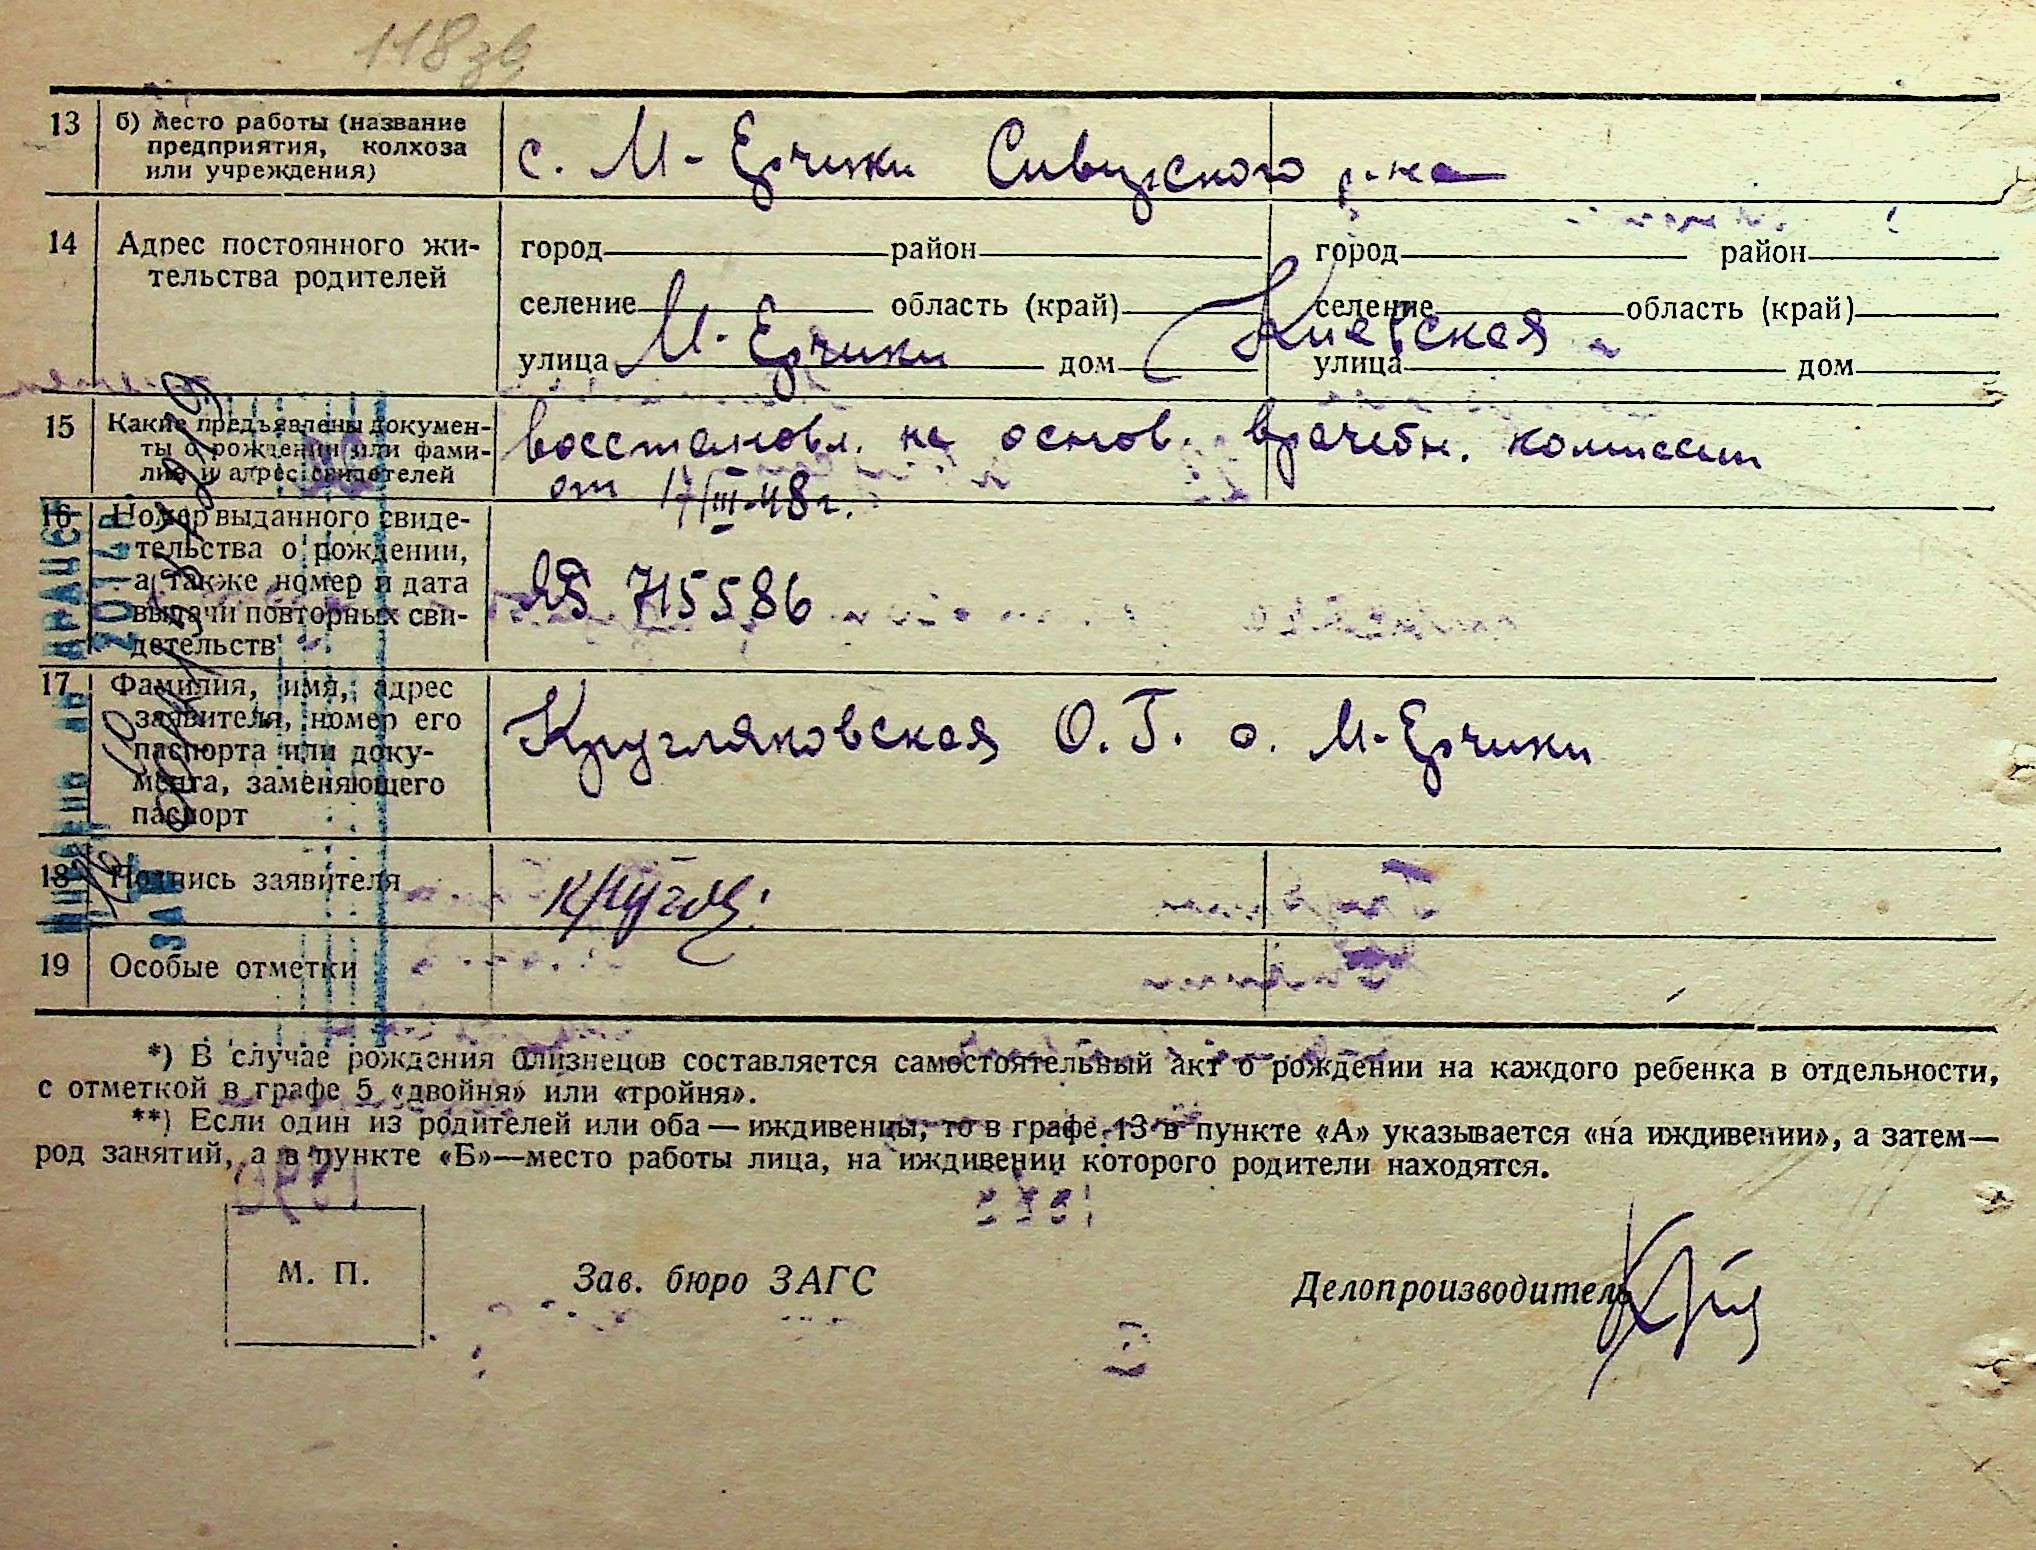 118 зв
13 б) Место работы (название
предприятия, колхоза
или учреждения)
с. М-Ерчики Сквирского р-на
14 Адрес постоянного жи-
тельства родителей
город район город район
селение область (край) селение область (край)
М-Ерчики Киевская
улица дом улица дом
15 Какие предъявлены докумен-
ты о рождении или фами-
лия и адрес свидетелей
восстановл. на основ. врачебн. комиссии
от 17/III-48г.
16 Номер выданного свиде-
тельства о рождении,
а также номер и дата
выдачи повторных сви-
детельств
ЯБ 715586
17 Фамилия, имя, адрес
заявителя, номер его
паспорта или доку-
мента, заменяющего
паспорт
Кругляковская О. Г. с. М-Ерчики
18 Подпись заявителя
Кругля
19 Особые отметки
*) В случае рождения близнецов составляется самостоятельный акт о рождении на каждого ребенка в отдельности,
с отметкой в графе 5 «двойня» или «тройня».
**) Если один из родителей или оба — иждивенцы, то в графе 13 в пункте «А» указывается «на иждивении», а затем—
род занятий, а в пункте «Б»—место работы лица, на иждивении которого родители находятся.
М. П.
Зав. бюро ЗАГС
Делопроизводитель